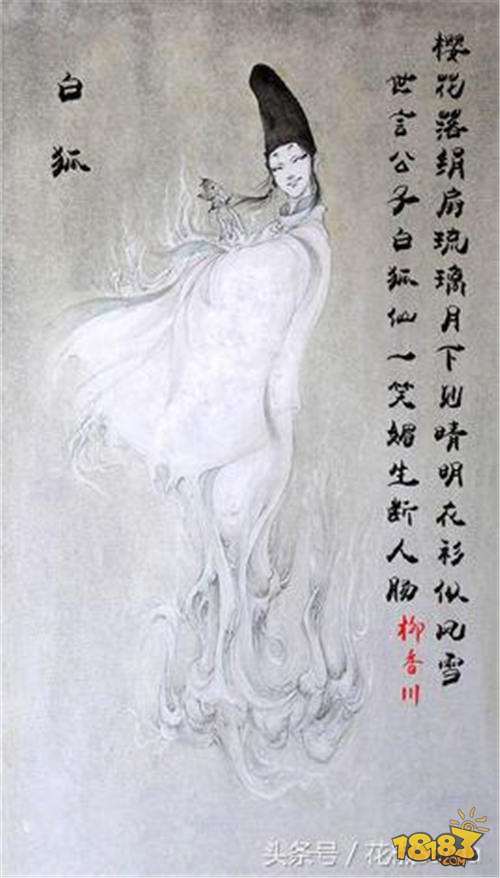 樱花落绢扇琉璃月下见晴明衣衫似风雪
世言公子白狐仙一笑媚生断人肠
柳香川
白狐
头条号/花
18183
.com